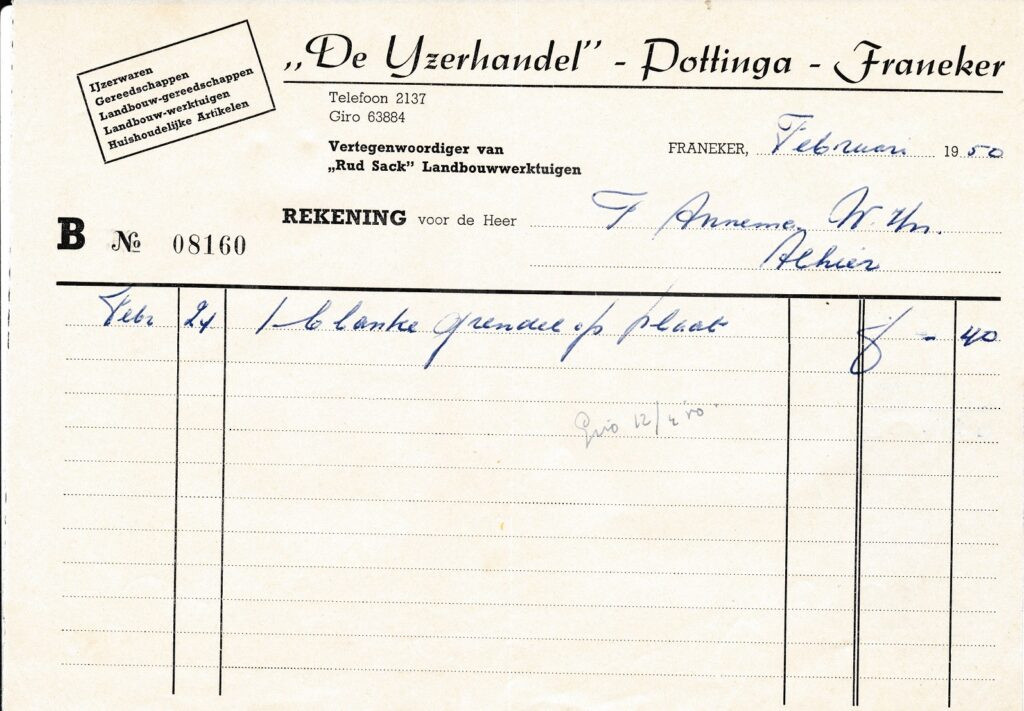 „De Yzerhandel” - Pottinga - Franeker
IJzerwaren
Gereedschappen
Landbouw-gereedschappen
Landbouw-werktuigen
Huishoudelijke Artikelen
Telefoon 2137
Giro 63884
Vertegenwoordiger van
„Rud Sack” Landbouwwerktuigen
FRANEKER, Februari 1950
REKENING voor de Heer F Annema
Alhier
B № 08160
Febr 24 1 blanke grendel op plaat f - 40
Giro 12/4